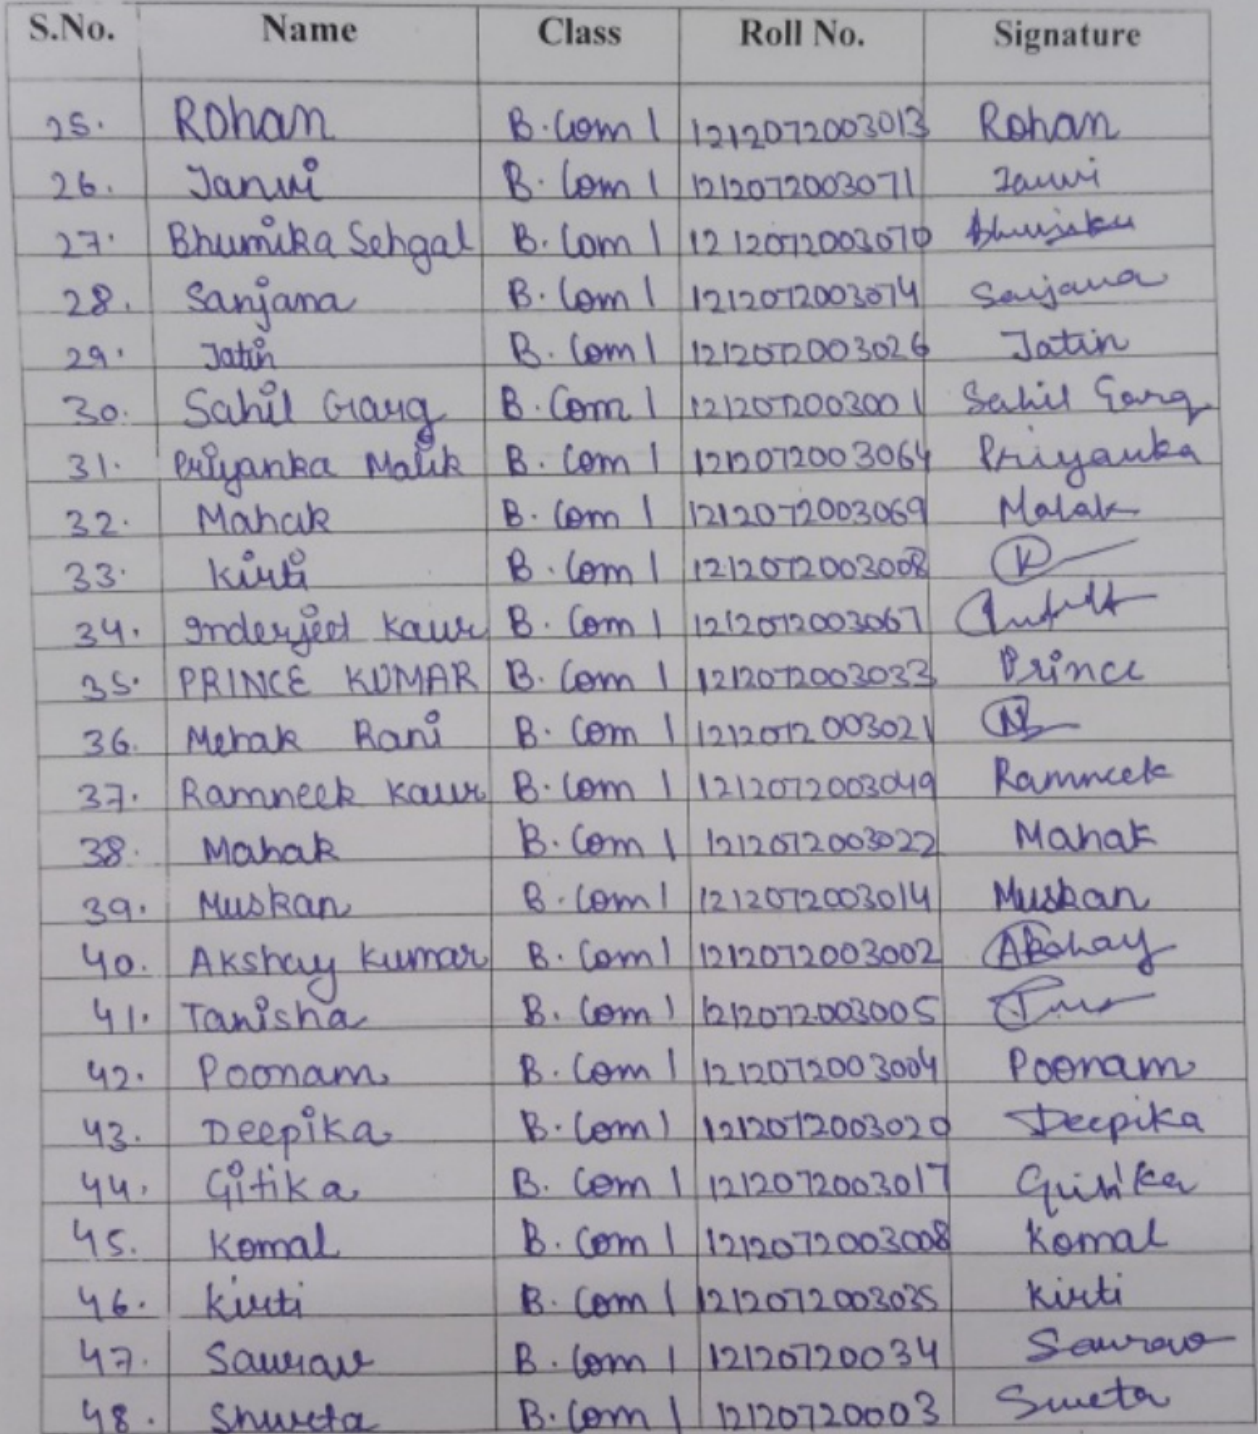 S.No. Name Class Roll No. Signature
25. Rohan B.Com 1 1212072003013 Rohan
26. Janvi B.Com 1 1212072003071 Janvi
27. Bhumika Sehgal B.Com 1 1212072003070 Bhumika
28. Sanjana B.Com 1 1212072003074 Sanjana
29. Jatin B.Com 1 1212072003026 Jatin
30. Sahil Garg B.Com 1 1212072003001 Sahil Garg
31. Priyanka Malik B.Com 1 1212072003064 Priyanka
32. Mahak B.Com 1 1212072003069 Mahak
33. Kirti B.Com 1 1212072003008 K
34. Inderjeet Kaur B.Com 1 1212072003067
35. PRINCE KUMAR B.Com 1 1212072003033 Prince
36. Mehak Rani B.Com 1 1212072003021
37. Ramneek Kaur B.Com 1 1212072003049 Ramneek
38. Mahak B.Com 1 1212072003022 Mahak
39. Muskan B.Com 1 1212072003014 Muskan
40. Akshay Kumar B.Com 1 1212072003002 Akshay
41. Tanisha B.Com 1 1212072003005
42. Poonam B.Com 1 1212072003004 Poonam
43. Deepika B.Com 1 1212072003020 Deepika
44. Gitika B.Com 1 1212072003017 Gitika
45. Komal B.Com 1 1212072003008 Komal
46. Kirti B.Com 1 1212072003035 Kirti
47. Saurav B.Com 1 12120720034 Saurav
48. Shweta B.Com 1 12120720003 Sweta